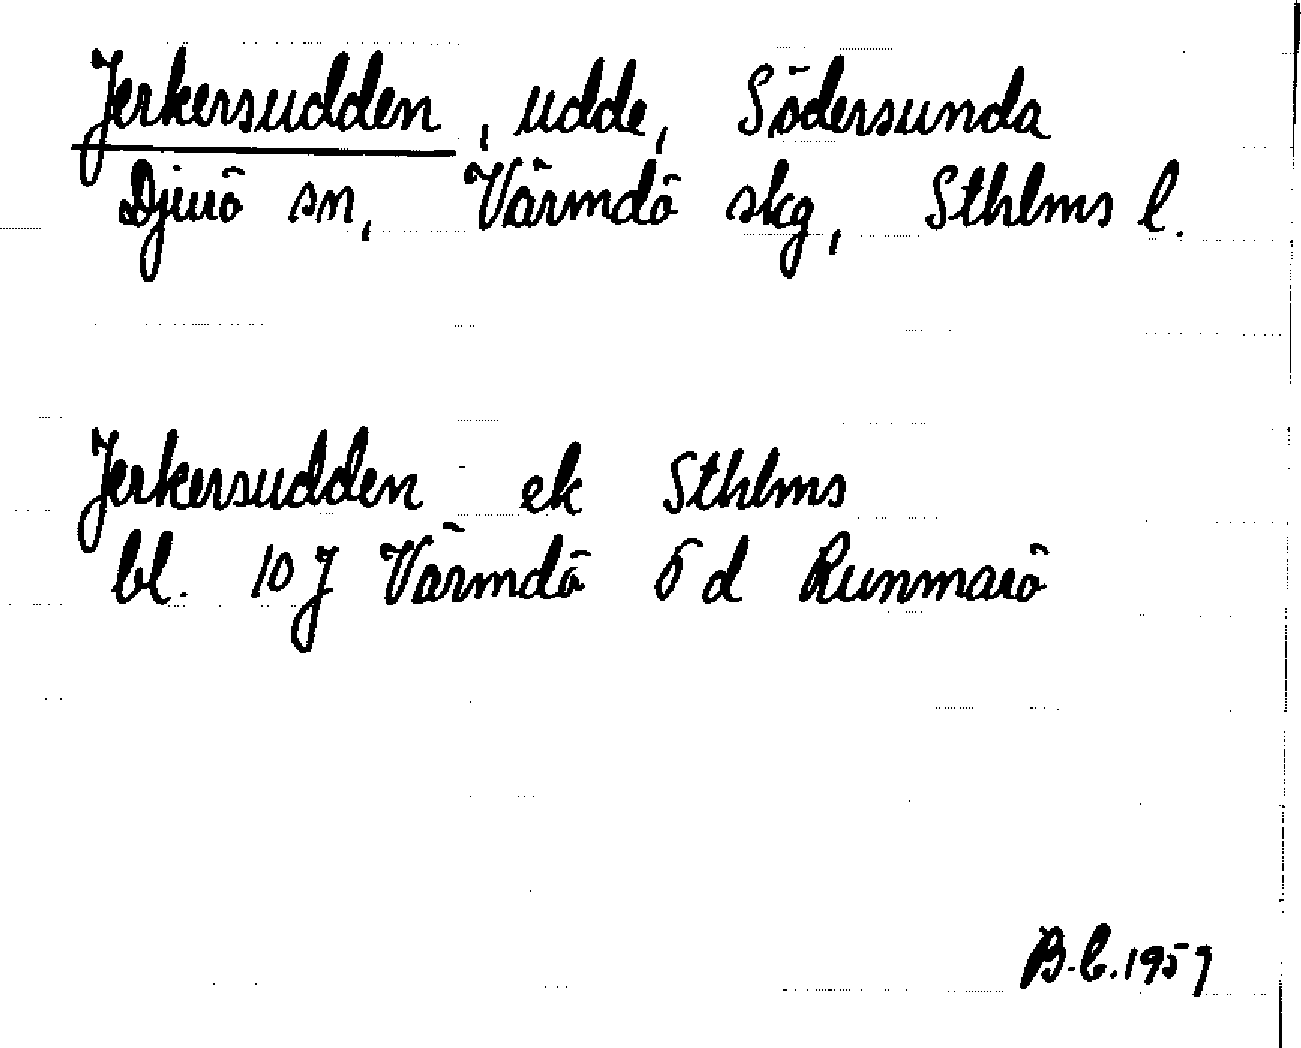 Jerkersudden, udde, Södersunda
Djurö sn, Värmdö skg, Sthlms l.
Jerkersudden ek Sthlms
bl. 10 J Värmdö 6 d Runmarö
B.C. 1957